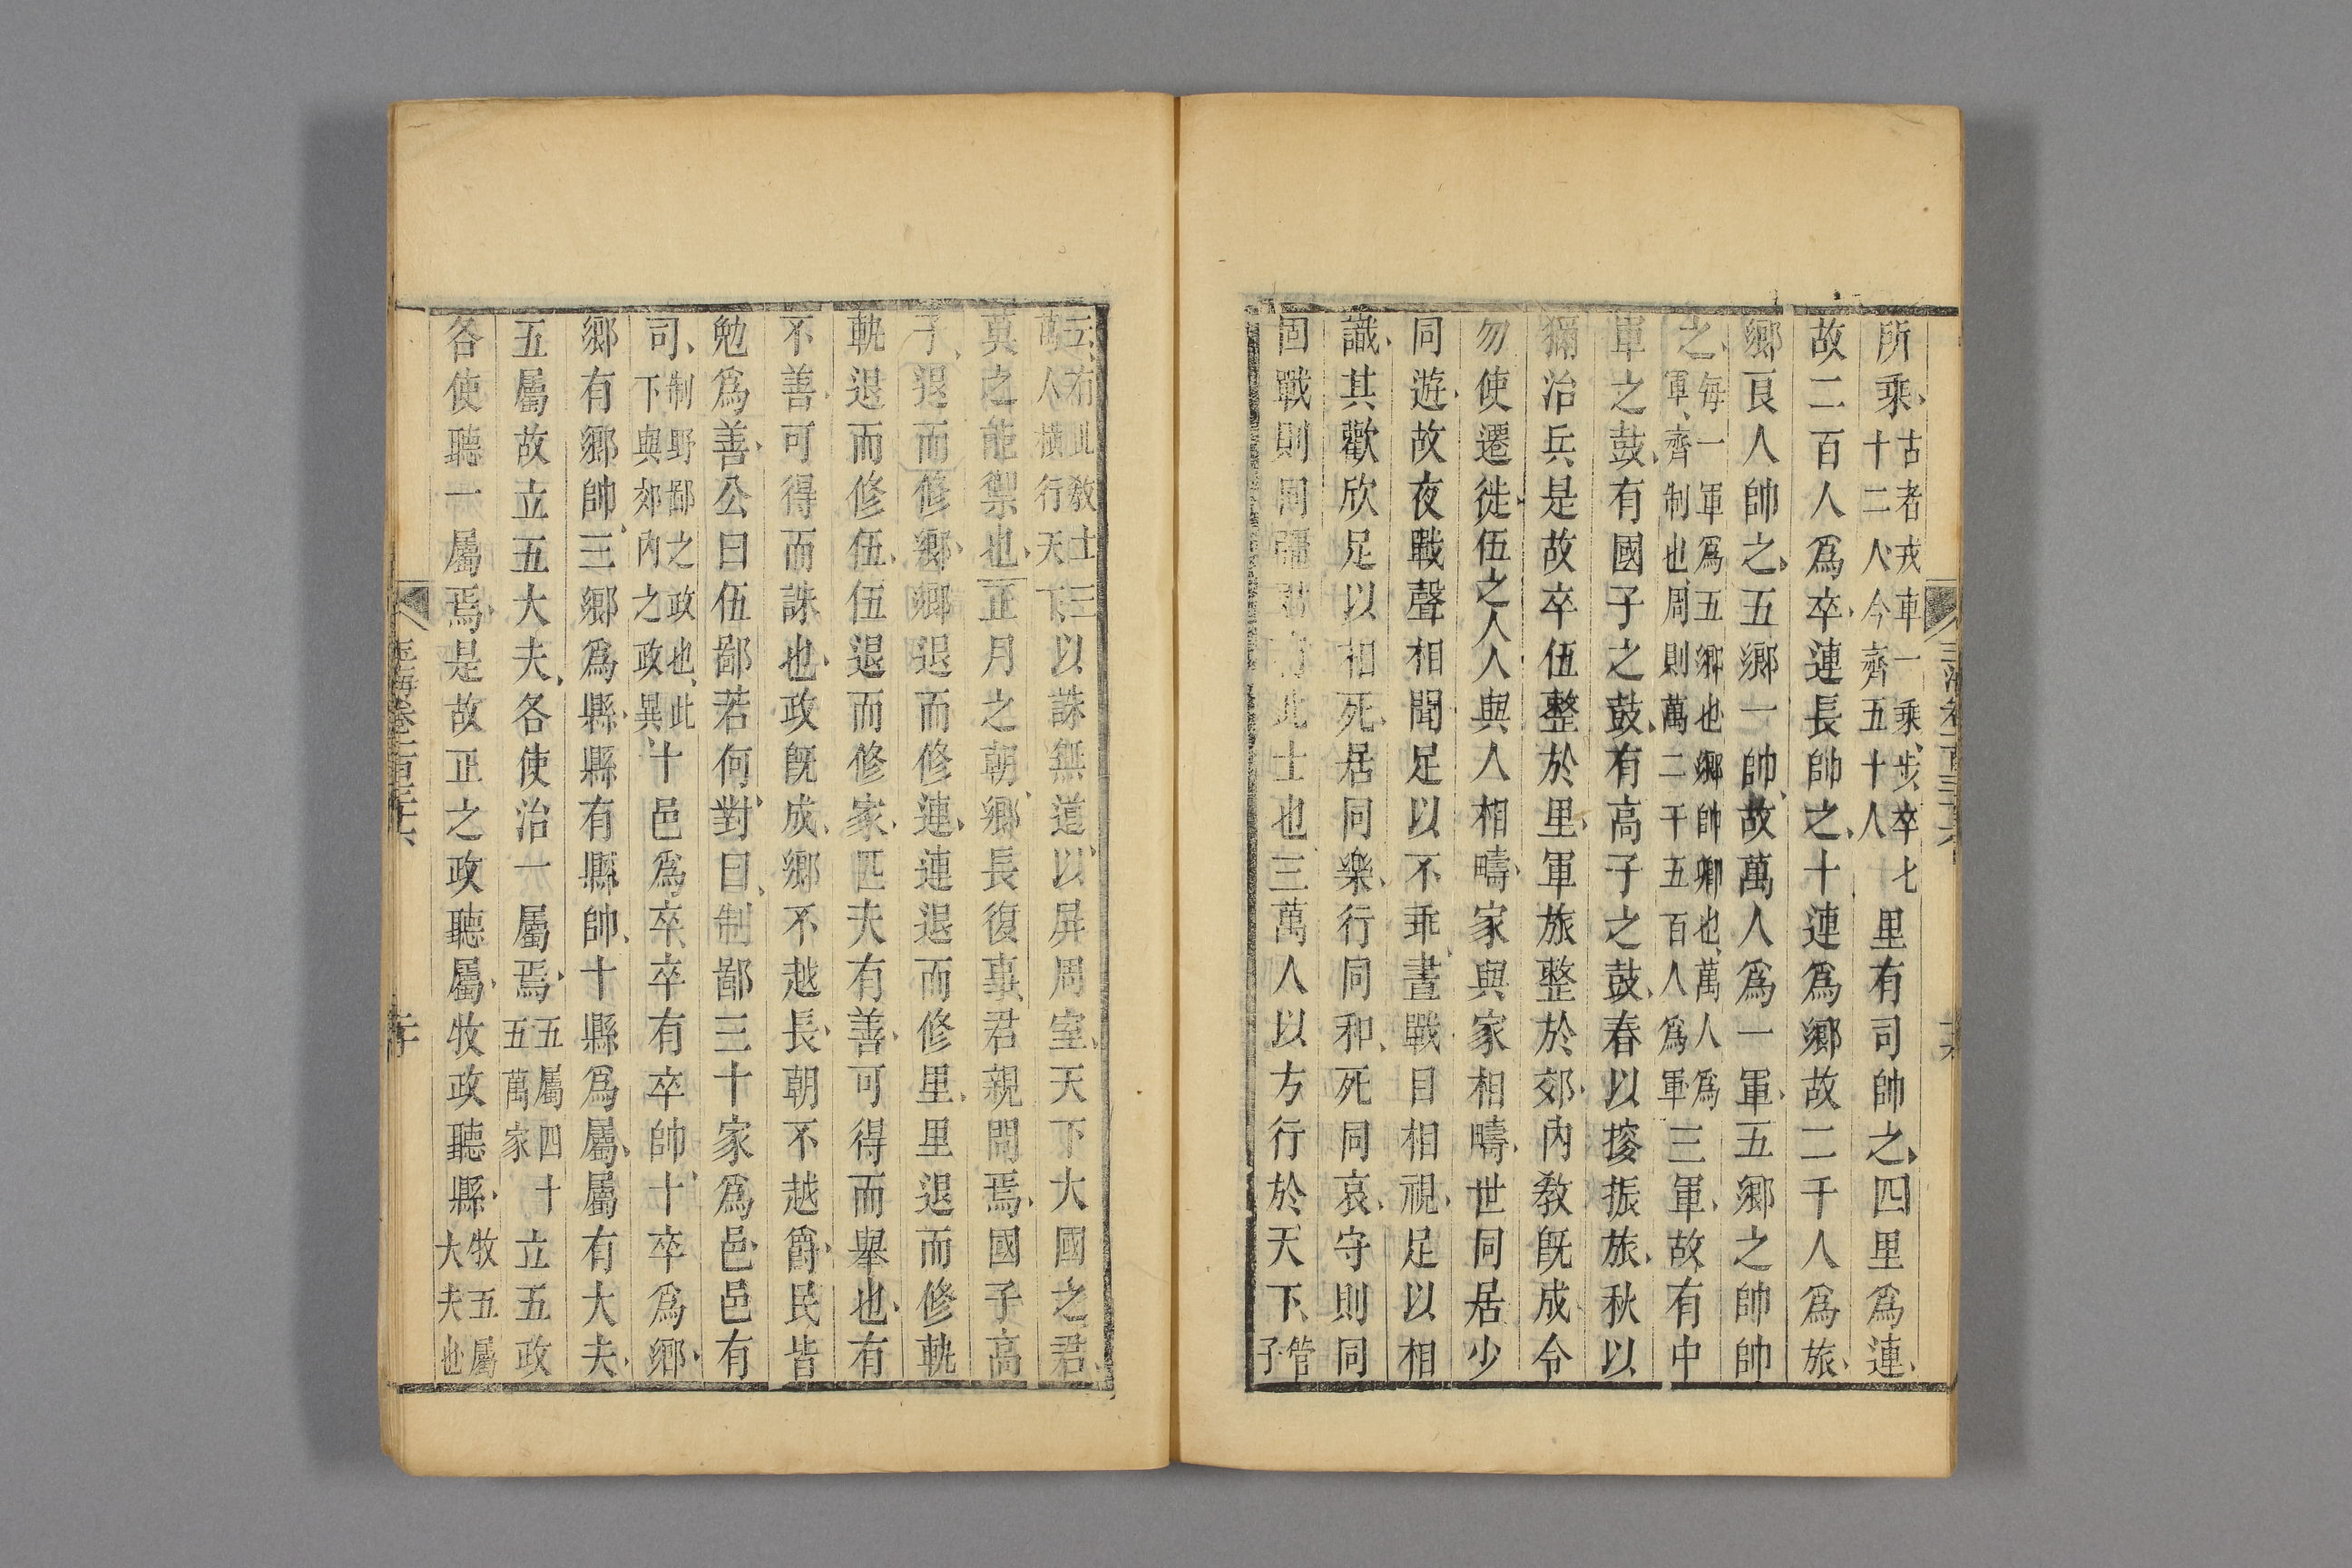 所乘、古者戎車一乘、步卒七十二人、今齊五十人里有司帥之、四里爲連、
故二百人爲卒、連長帥之、十連爲鄉故二千人爲旅、
鄉良人帥之、五鄉一帥、故萬人爲一軍、五鄉之帥帥
之、每一軍爲五鄉也鄉帥卿也、萬人爲軍、齊制也、周則萬二千五百人爲軍、三軍、故有中
軍之鼓、有國子之鼓、有高子之鼓、春以㨃振旅、秋以
獮治兵是故卒伍整於里、軍旅整於郊、內敎旣成、令
勿使遷徙、伍之人人與人相疇、家與家相疇、世同居少
同遊、故夜戰聲相聞足以不乖、晝戰目相視、足以相
識、其歡欣足以相死、居同樂、行同和、死同哀、守則同
固戰則同彊君有此士也三萬人以方行於天下、管子
云、有此敎士三萬人橫行天下、以誅無道、以屏周室、天下大國之君、
莫之能禦也、正月之朝、鄉長復事、君親問焉、國子高
子、退而修鄉、鄉退而修連、連退而修里、里退而修軌
軌退而修伍、伍退而修家、匹夫有善、可得而舉也、有
不善、可得而誅也、政旣成、鄉不越長、朝不越爵、民皆
勉爲善、公曰伍鄙若何、對曰、制鄙三十家爲邑、邑有
司、制野鄙之政也、此下與郊內之政異、十邑爲卒、卒有卒帥、十卒爲鄉、
鄉有鄉帥、三鄉爲縣、縣有縣帥、十縣爲屬、屬有大夫、
五屬故立五大夫、各使治一屬焉、五屬四十五萬家立五政
各使聽一屬焉、是故正之政聽屬、牧政聽縣、牧五屬大夫也